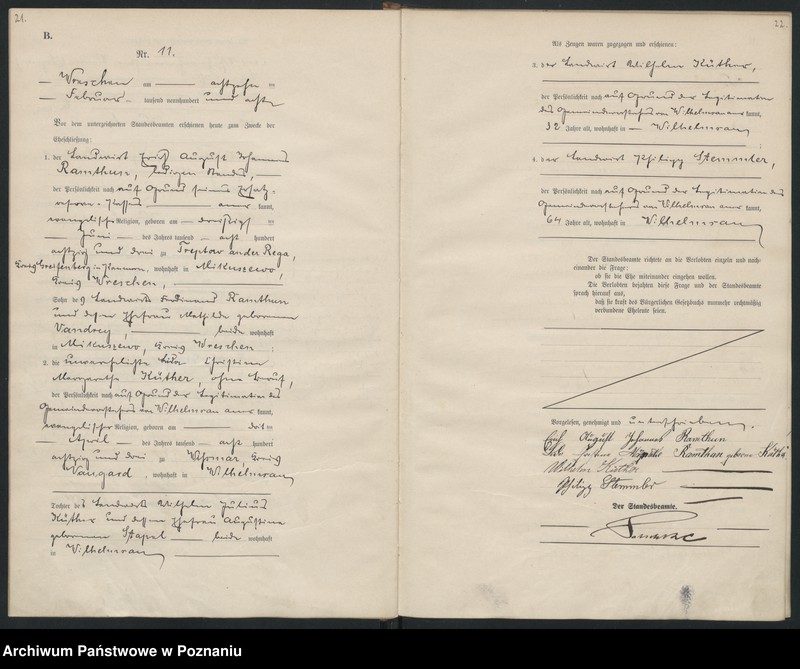 21.
B.
Nr. 11.
Wreschen am achtzehn ten
Februar tausend neunhundert und acht
Vor dem unterzeichneten Standesbeamten erschienen heute zum Zwecke der
Eheschließung:
1. der Landwirt Erich August Johannes
Ramthun, ledigen Standes,
der Persönlichkeit nach auf Grund seines Ersatz-
reserve-Passes kannt,
evangelischer Religion, geboren am dreißigs ten
Juni des Jahres tausend acht hundert
achtzig und drei zu Treptow an der Rega,
Kreis Greifenberg in Pommern, wohnhaft in Mikuszewo,
Kreis Wreschen,
Sohn des Landwirts Ferdinand Ramthun
und dessen Ehefrau Mathilde geborenen
Vandrey, beide wohnhaft
in Mikuszewo, Kreis Wreschen;
2. die unverehelichte Christine
Margarethe Küther, ohne Beruf,
der Persönlichkeit nach auf Grund der Legitimation des
Gemeindevorstehers von Wilhelmsau kannt,
evangelischer Religion, geboren am drit ten
April des Jahres tausend acht hundert
achtzig und drei zu Wismar, Kreis
Naugard, wohnhaft in Wilhelmsau
Tochter des Landwirts Wilhelm Julius
Küther und dessen Ehefrau Augustine
geborenen Stapel beide wohnhaft
in Wilhelmsau
22.
Als Zeugen waren zugezogen und erschienen:
3. der Landwirt Wilhelm Küther,
der Persönlichkeit nach auf Grund der Legitimation
des Gemeindevorstehers von Wilhelmsau kannt,
32 Jahre alt, wohnhaft in Wilhelmsau
4. der Landwirt Philipp Stemmler,
der Persönlichkeit nach auf Grund der Legitimation des
Gemeindevorstehers von Wilhelmsau kannt,
64 Jahre alt, wohnhaft in Wilhelmsau
Der Standesbeamte richtete an die Verlobten einzeln und nach-
einander die Frage:
ob sie die Ehe miteinander eingehen wollen.
Die Verlobten bejahten diese Frage und der Standesbeamte
sprach hierauf aus,
daß sie kraft des Bürgerlichen Gesetzbuchs nunmehr rechtmäßig
verbundene Eheleute seien.
Vorgelesen, genehmigt und unterschrieben.
Erich August Johannes Ramthun
Ramthun geborene Küther
Wilhelm Küther
Philipp Stemmler
Der Standesbeamte.
Archiwum Państwowe w Poznaniu